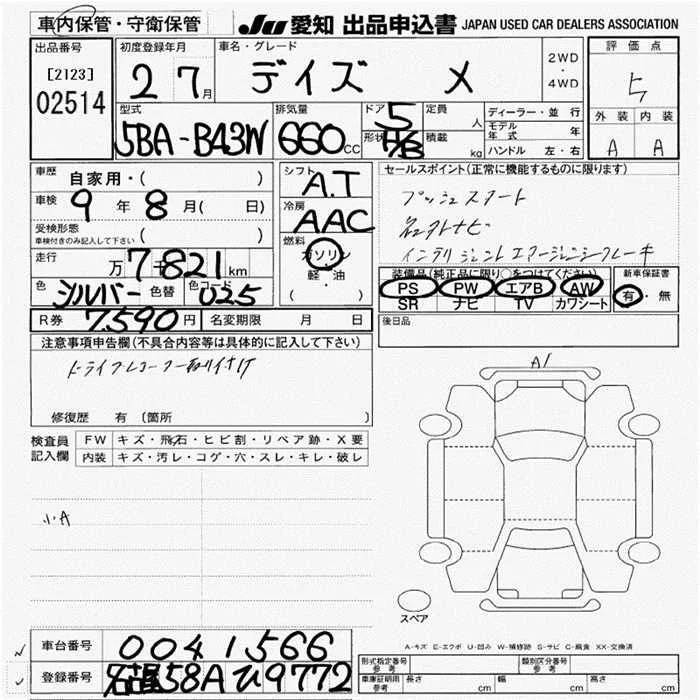 車内保管・守衛保管
JU 愛知 出品申込書 JAPAN USED CAR DEALERS ASSOCIATION
出品番号
[2123]
02514
初度登録年月
2 7月
車名・グレード
デイズ メ
2WD
・
4WD
評価点
5
外装 内装
A A
型式
5BA-B43W
排気量
660cc
ドア
5
形状
H/B
定員
人
積載
kg
ディーラー・並行
モデル年式 年
ハンドル 左・右
車歴
自家用・( )
車検
9年8月( 日)
受検形態
車検付きのみ記入して下さい
( )
走行
万7千821km
色
シルバー
色替
色コード
025
シフト
A.T
冷房
AAC
燃料
ガソリン
軽・油
( )
セールスポイント(正常に機能するものに限ります)
プッシュスタート
インテリジェントエマージェンシーブレーキ
装備品(純正品に限り○をつけてください)
PS PW エアB AW
SR ナビ TV カワシート
新車保証書
有・無
R券
7,590円
名変期限 月 日
後日品
注意事項申告欄(不具合内容等は具体的に記入して下さい)
ドライブレコーダー取り付け
修復歴 有 〔箇所 〕
検査員記入欄
FW キズ・飛石・ヒビ割・リペア跡・X要
内装 キズ・汚レ・コゲ・穴・スレ・キレ・破レ
小A
A1
スペア
A-キズ E-エクボ U-凹み W-補修跡 S-サビ C-腐食 XX-交換済
車台番号
0041566
登録番号
名古屋58Aひ9772
形式指定番号
参考
類別区分番号
参考
車庫証明用
参考
長さ cm
幅 cm
高さ cm